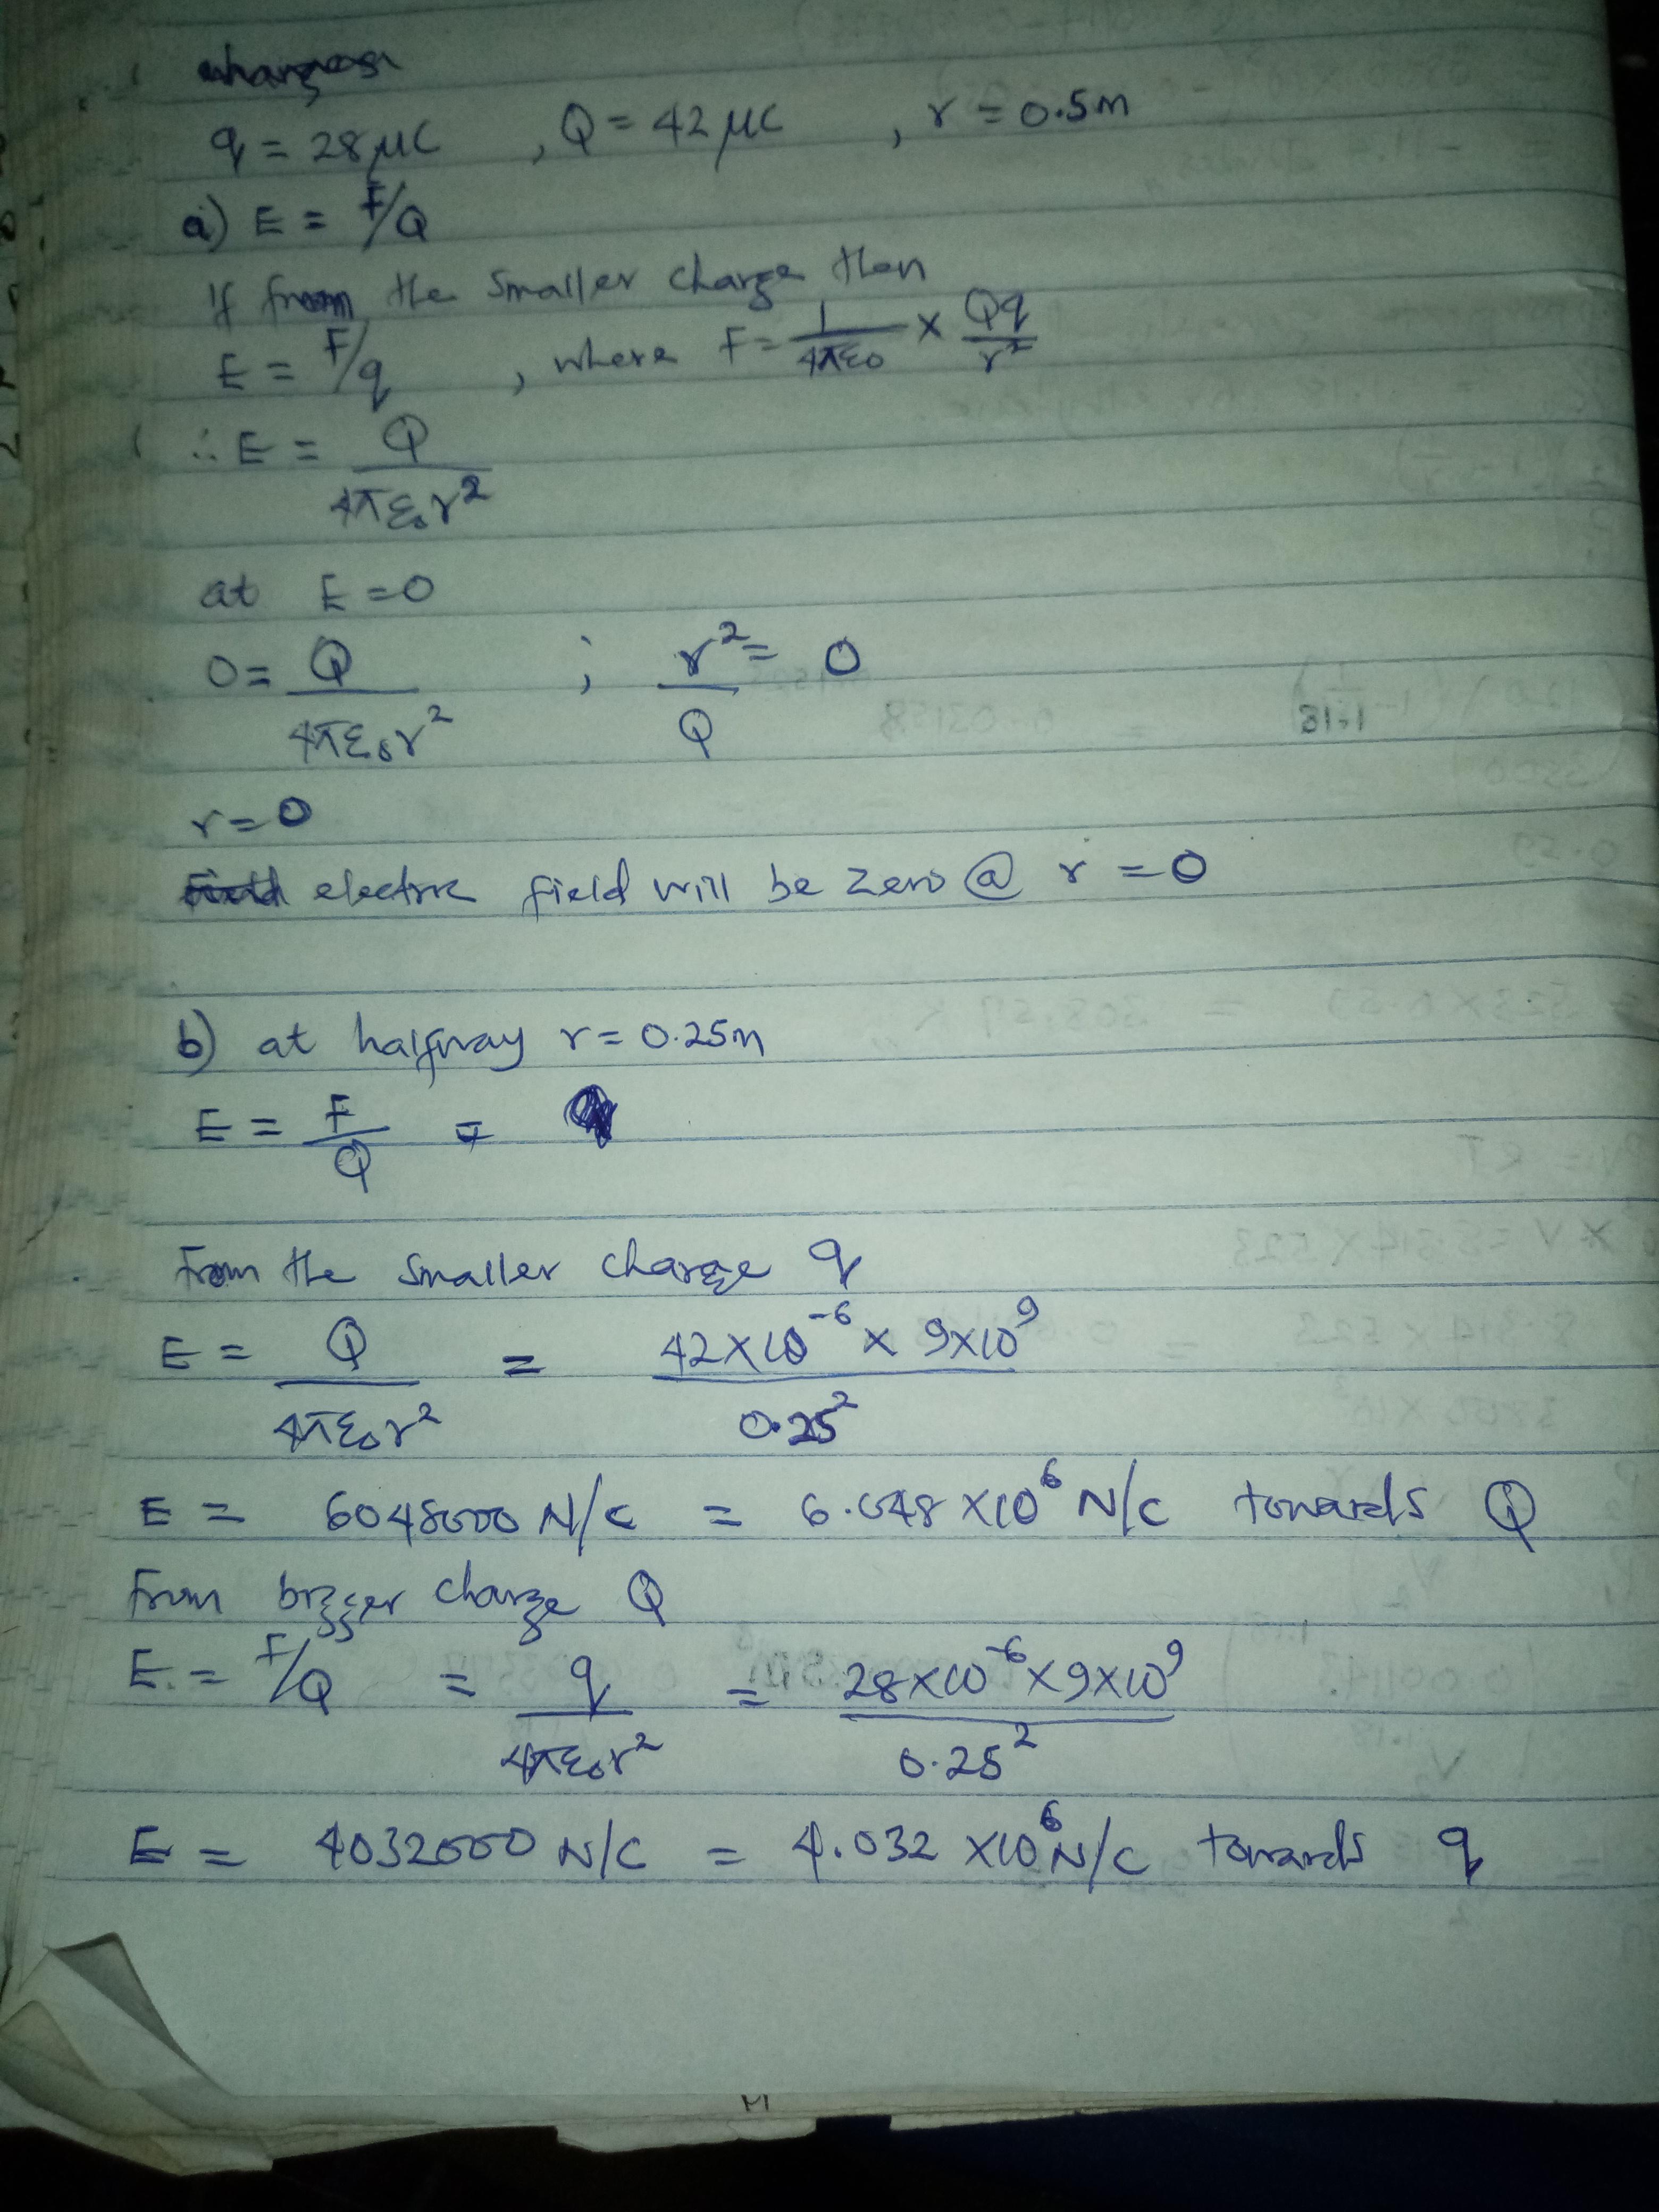 charges
q = 28 μC , Q = 42 μC , r = 0.5m
a) E = F/Q
If from the smaller charge then
E = F/q , where F = 1/4πε0 × Qq/r²
∴ E = Q/4πε₀r²
at E = 0
0 = Q/4πε₀r² ; r²/Q = 0
r = 0
electric field will be zero @ r = 0
b) at halfway r = 0.25m
E = F/Q =
From the smaller charge q
E = Q/4πε₀r² = 42×10⁻⁶ × 9×10⁹/0.25²
E = 6048000 N/C = 6.048 ×10⁶ N/C towards Q
From bigger charge Q
E = F/Q = q/4πε₀r² = 28×10⁻⁶×9×10⁹/0.25²
E = 4032000 N/C = 4.032 ×10⁶ N/C towards q